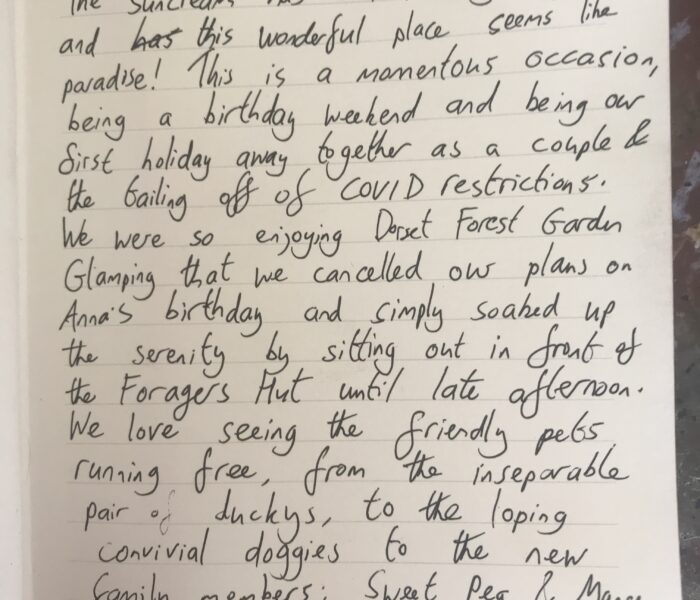 The suncream
and has this wonderful place seems like
paradise! This is a momentous occasion,
being a birthday weekend and being our
first holiday away together as a couple &
the tailing off of COVID restrictions.
We were so enjoying Dorset Forest Garden
Glamping that we cancelled our plans on
Anna's birthday and simply soaked up
the serenity by sitting out in front of
the Foragers Hut until late afternoon.
We love seeing the friendly pets
running free, from the inseparable
pair of duckys, to the loping
convivial doggies to the new
family members: Sweet Pea &